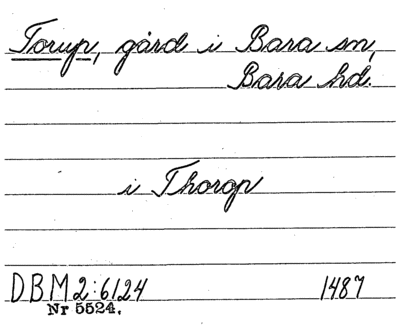 Torup, gård i Bara sn,
Bara hd.
i Thorop
DBM 2:6124 1487
Nr 5524.